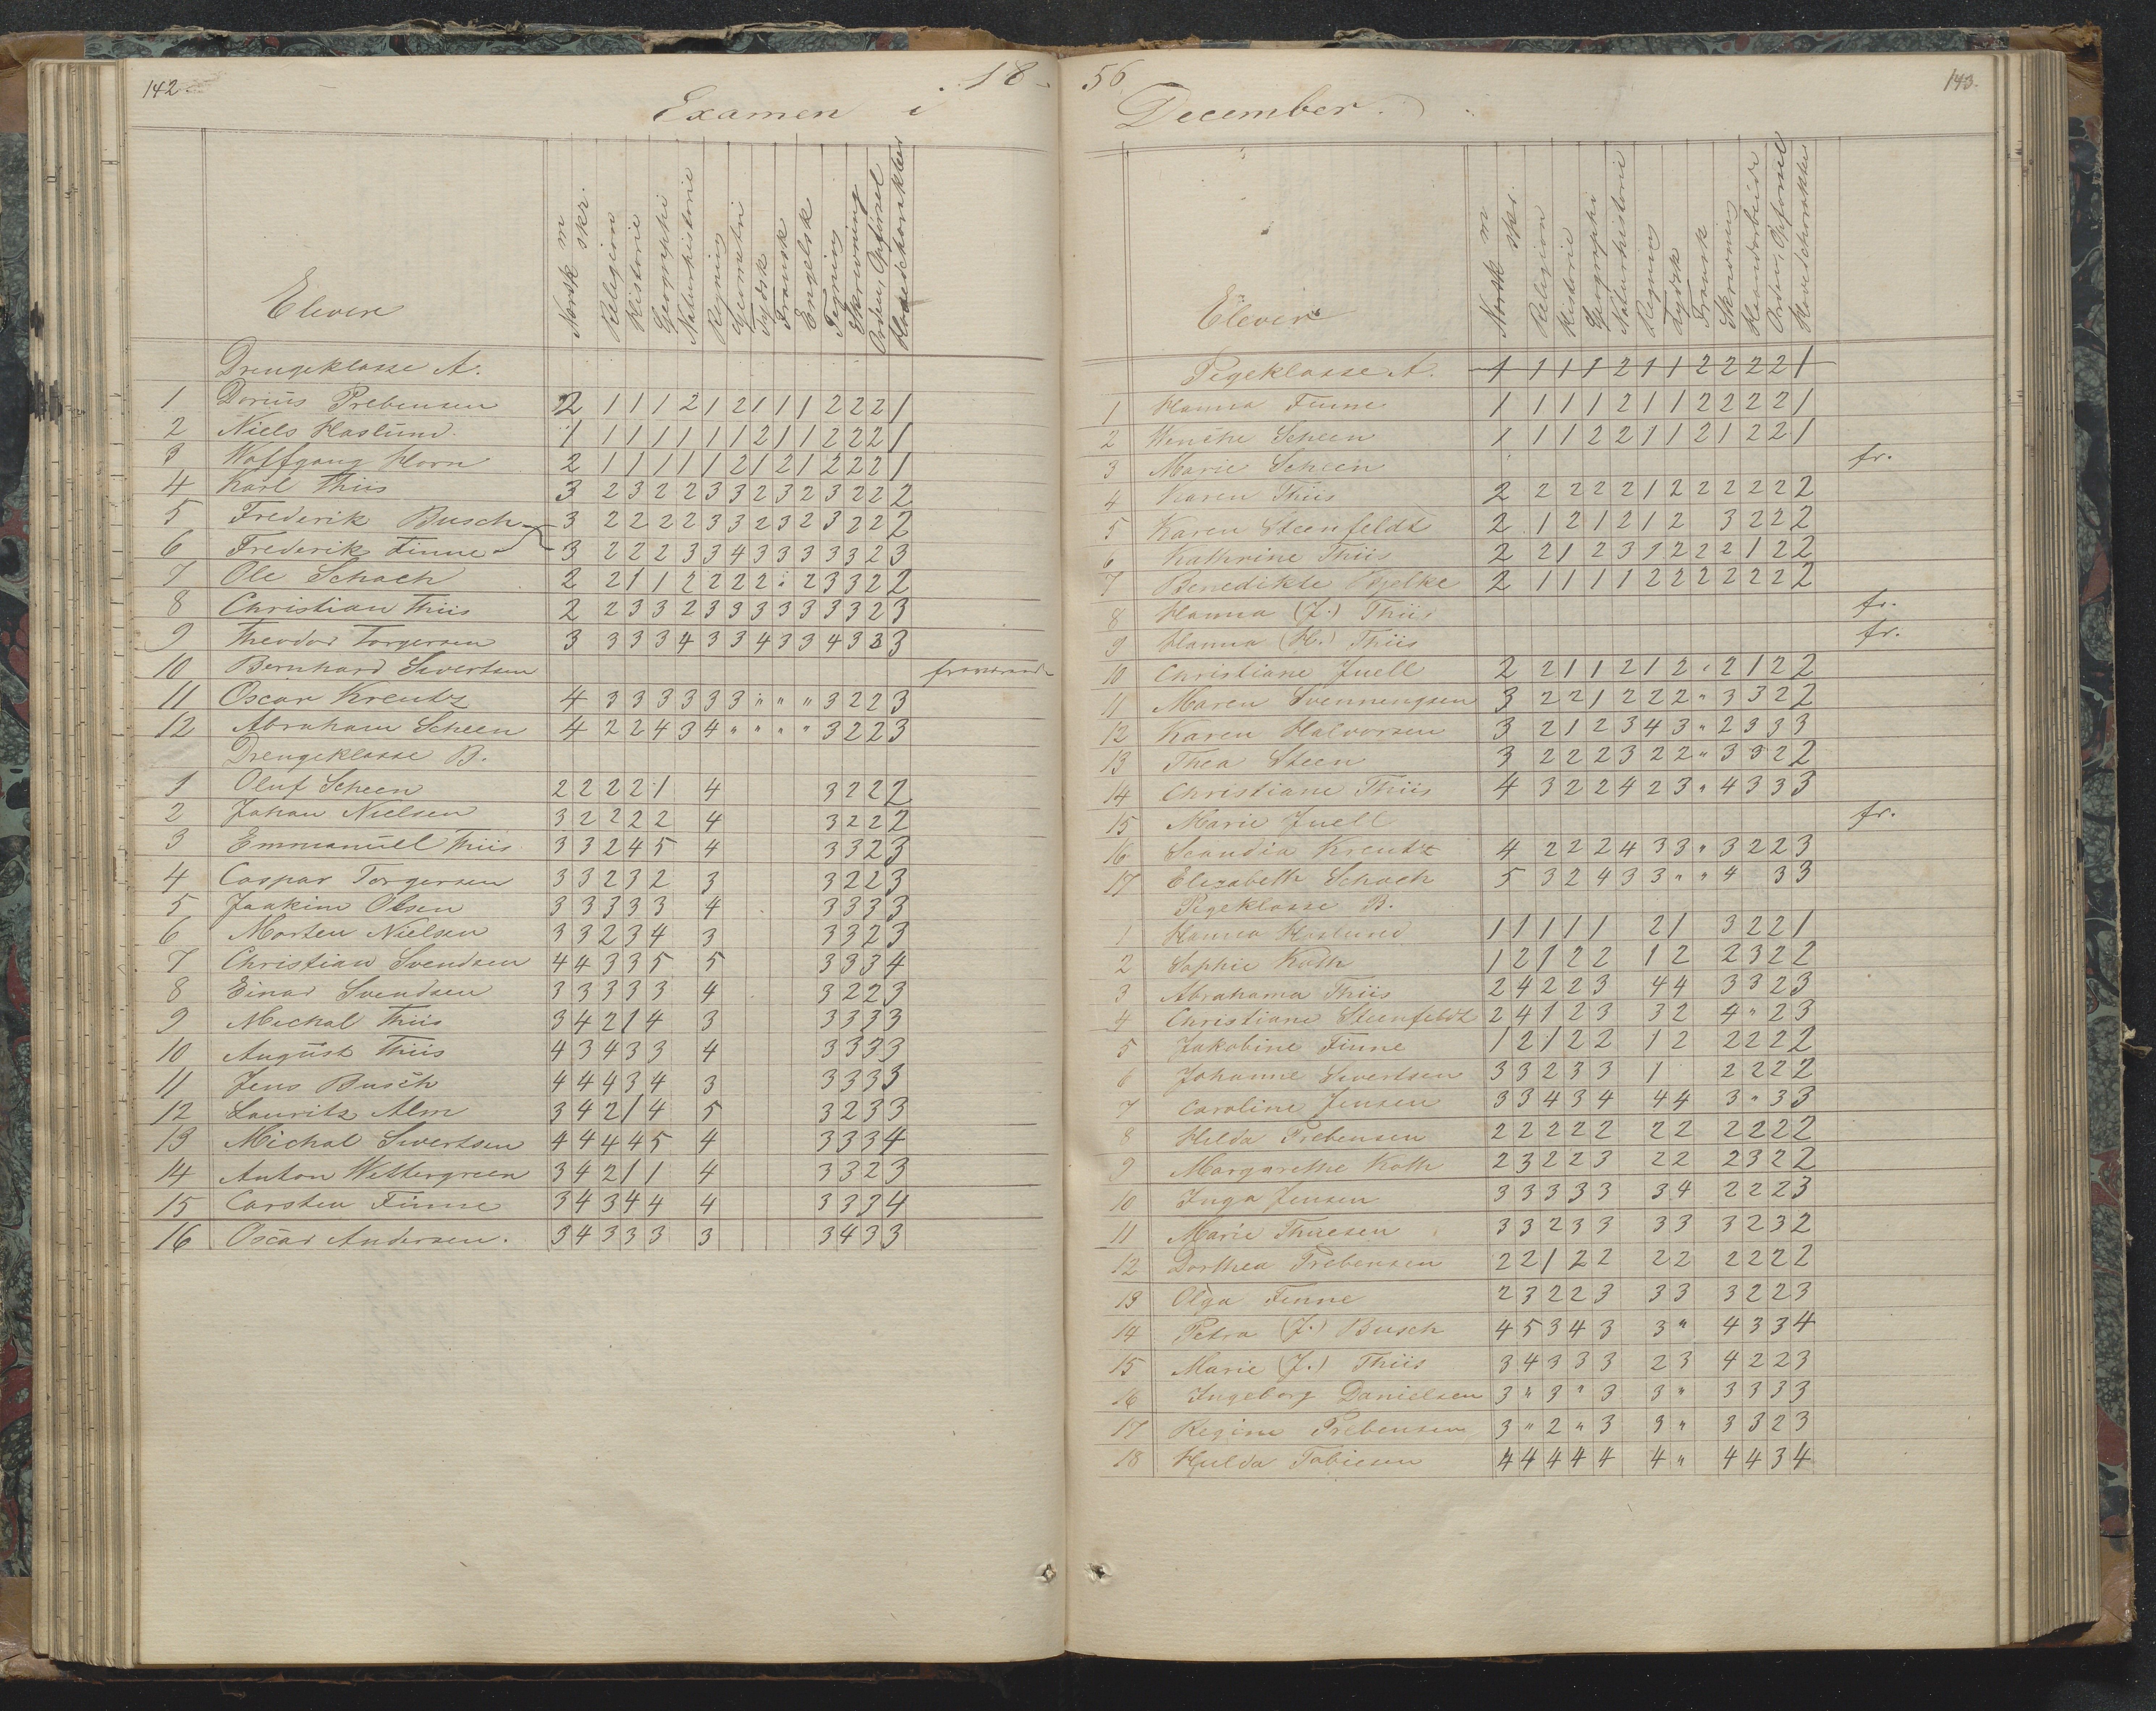 142
18
Examen i
Elever
Norsk m skr.
Religion
Historie
Geographi
Naturhistorie
Regning
Geometri
Tydsk
Fransk
Engelsk
Tegning
Skrivning
Orden, Opførsel
Hovedcharakter
Drengeklasse A.
1 Dorius Prebensen 2 1 1 1 2 1 2 1 1 1 2 2 2 1
2 Niels Haslund 1 1 1 1 1 1 1 2 1 1 2 2 2 1
3 Wolfgang Horn 2 1 1 1 1 1 2 1 2 1 2 2 2 1
4 Karl Thiis 3 2 3 2 2 3 3 2 3 2 3 2 2 2
5 Frederik Busch 3 2 2 2 2 3 3 2 3 2 3 2 2 2
6 Frederik Finne 3 2 2 2 3 3 4 3 3 3 3 3 2 3
7 Ole Schach 2 2 1 1 2 2 2 2 : 2 3 3 2 2
8 Christian Thiis 2 2 3 3 2 3 3 3 3 3 3 3 2 3
9 Theodor Torgersen 3 3 3 3 4 3 3 4 3 3 4 3 3 3
10 Bernhard Sivertsen
11 Oscar Kreutz 4 3 3 3 3 3 3 " " " 3 2 2 3
12 Abraham Scheen 4 2 2 4 3 4 " " " " 3 2 2 3
Drengeklasse B.
1 Oluf Scheen 2 2 2 2 1 4 3 2 2 2
2 Johan Nielsen 3 2 2 2 2 4 3 2 2 2
3 Emmanuel Thiis 3 3 2 4 5 4 3 3 2 3
4 Caspar Torgersen 3 3 2 3 2 3 3 2 2 3
5 Joakim Olsen 3 3 3 3 3 4 3 3 3 3
6 Morten Nielsen 3 3 2 3 4 3 3 3 2 3
7 Christian Svendsen 4 4 3 3 5 5 3 3 3 4
8 Einar Svendsen 3 3 3 3 3 4 3 2 2 3
9 Michal Thiis 3 4 2 1 4 3 3 3 3 3
10 August Thiis 4 3 4 3 3 4 3 3 3 3
11 Jens Busch 4 4 4 3 4 3 3 3 3 3
12 Lauritz Alm 3 4 2 1 4 5 3 2 3 3
13 Michal Sivertsen 4 4 4 4 5 4 3 3 3 4
14 Anton Wettergreen 3 4 2 1 1 4 3 3 2 3
15 Carsten Finne 3 4 3 4 4 4 3 3 3 4
16 Oscar Andersen. 3 4 3 3 3 3 3 4 3 3
56
143.
December.
Elever
Norsk m skr.
Religion
Historie
Geographi
Naturhistorie
Regning
Tydsk
Fransk
Skrivning
Haandarbeide
Orden, Opførsel
Hovedcharakter
Pigeklasse A. 1 1 1 1 2 1 1 2 2 2 2 1
1 Hanna Finne 1 1 1 1 2 1 1 2 2 2 2 1
2 Wenche Scheen 1 1 1 2 2 1 1 2 1 2 2 1
3 Marie Scheen fr.
4 Karen Thiis 2 2 2 2 2 1 2 2 2 2 2 2
5 Karen Steenfeldt 2 1 2 1 2 1 2 3 2 2 2
6 Kathrine Thiis 2 2 1 2 3 1 2 2 2 1 2 2
7 Benedikte Kjelke 2 1 1 1 1 2 2 2 2 2 2 2
8 Hanna (J.) Thiis fr.
9 Hanna (H.) Thiis fr.
10 Christiane Juell 2 2 1 1 2 1 2 " 2 1 2 2
11 Maren Svenningsen 3 2 2 1 2 2 2 " 3 3 2 2
12 Karen Halvorsen 3 2 1 2 3 4 3 " 2 3 3 3
13 Thea Steen 3 2 2 2 3 2 2 " 3 3 2 2
14 Christiane Thiis 4 3 2 2 4 2 3 " 4 3 3 3
15 Marie Juell fr.
16 Scandia Kreutz 4 2 2 2 4 3 3 " 3 2 2 3
17 Elisabeth Schach 5 3 2 4 3 3 " " 4 3 3
Pigeklasse B.
1 Hanna Haslund 1 1 1 1 1 2 1 3 2 2 1
2 Sophie Koth 1 2 1 2 2 1 2 2 3 2 2
3 Abrahama Thiis 2 4 2 2 3 4 4 3 3 2 3
4 Christiane Steenfeldt 2 4 1 2 3 3 2 4 " 2 3
5 Jakobine Finne 1 2 1 2 2 1 2 2 2 2 2
6 Johanne Sivertsen 3 3 2 3 3 1 2 2 2 2
7 Caroline Jensen 3 3 4 3 4 4 4 3 " 3 3
8 Hilda Prebensen 2 2 2 2 2 2 2 2 2 2 2
9 Margarethe Koth 2 3 2 2 3 2 2 2 3 2 2
10 Inga Jensen 3 3 3 3 3 3 4 2 2 2 3
11 Marie Thuesen 3 3 2 3 3 3 3 3 2 3 2
12 Dorthea Prebensen 2 2 1 2 2 2 2 2 2 2 2
13 Olga Finne 2 3 2 2 3 3 3 3 2 2 3
14 Petra (J.) Busch 4 5 3 4 3 3 " 4 3 3 4
15 Marie (J.) Thiis 3 4 3 3 3 2 3 4 2 2 3
16 Ingeborg Danielsen 3 " 3 " 3 3 " 3 3 3 3
17 Regine Prebensen 3 " 2 " 3 3 " 3 3 2 3
18 Hulda Tobiesen 4 4 4 4 4 4 " 4 4 3 4